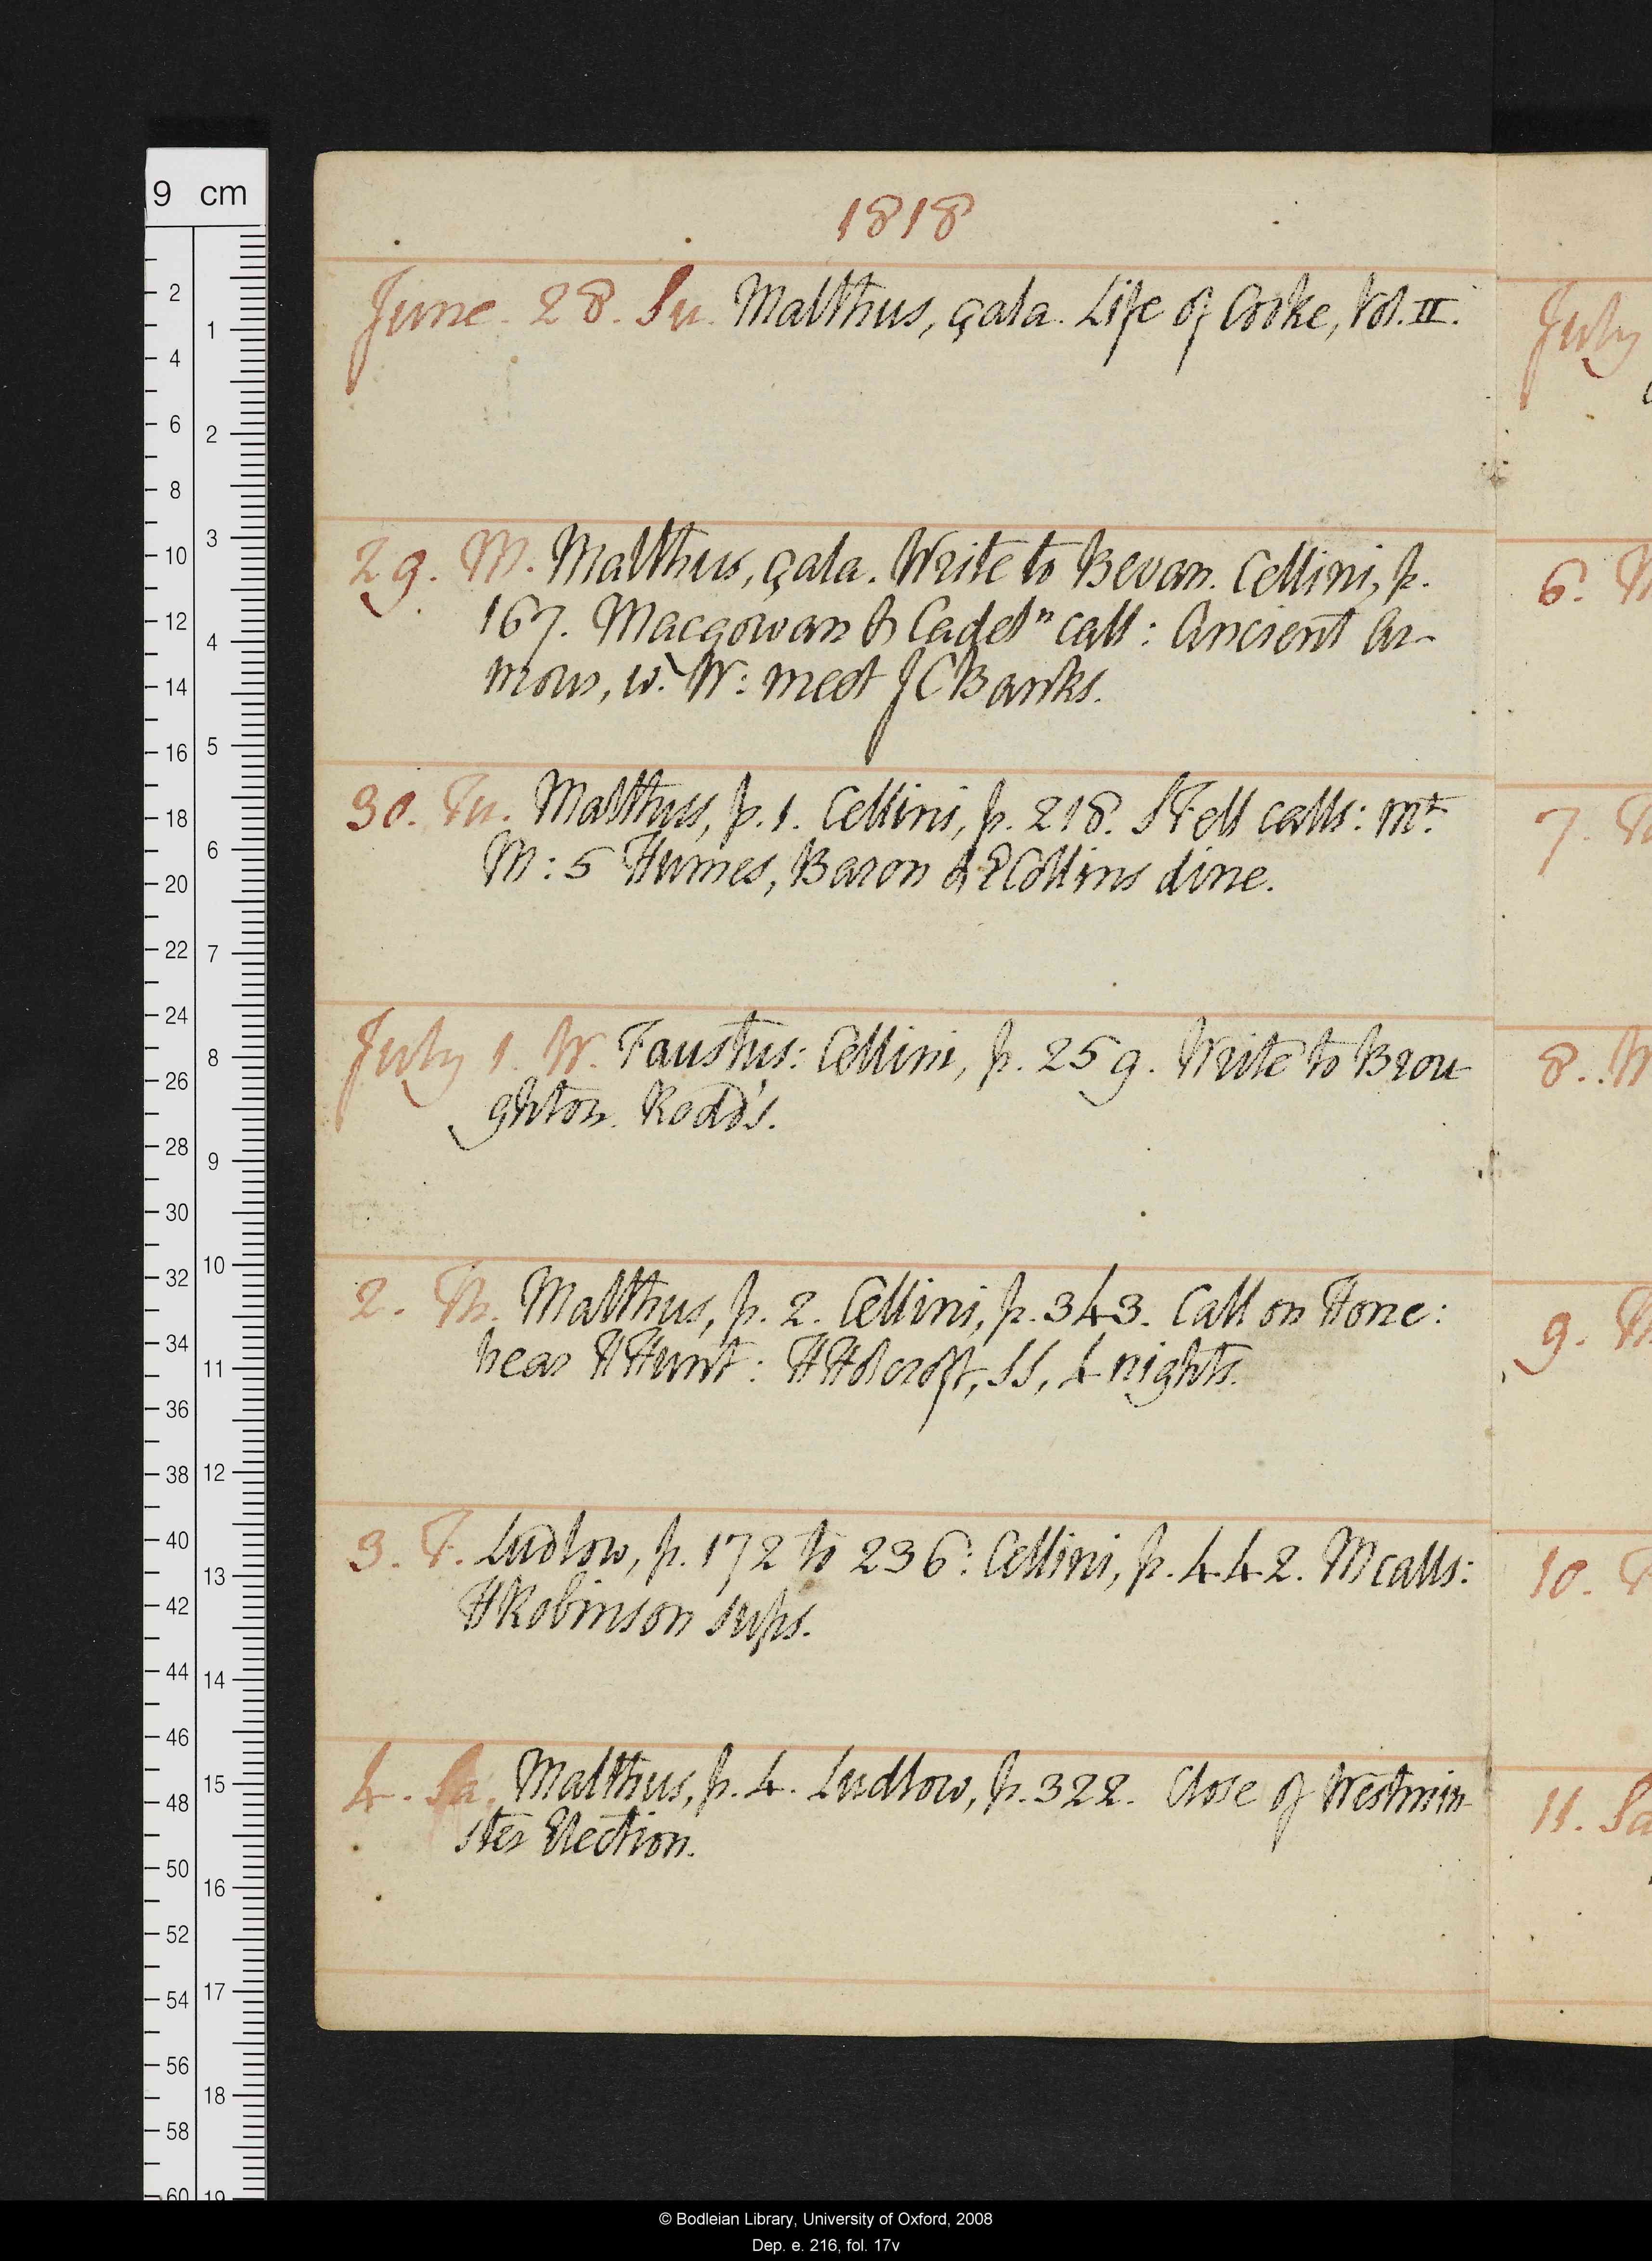 1818
June 28. Su. Malthus, çala. Life of Cooke, Vol. II.
29. M. Malthus, çala. Write to Bevan. Cellini, p.
167. Macgowan & Cadel<sup>n</sup> call: Ancient Ar-
mour, w. W: meet JCBanks.
30. Tu. Malthus, p. 1. Cellini, p. 218. STell calls: mt
M: 5 Humes, Baron & ECollins dine.
July 1. W. Faustus: Cellini, p. 259. Write to Brou
ghton. Rodd's.
2. Th. Malthus, p. 2. Cellini, p. 343. Call on Hone:
hear HHunt: HHolcroft, SS, 4 nights.
3. F. Ludlow, p. 172 to 236: Cellini, p. 442. M calls:
HRobinson sups.
4. Sa. Malthus, p. 4. Ludlow, p. 322. Close of Westmin-
ster Election.
July
6. M
7. T
8. W
9. Th
10. F
11. Sa
9 cm
2 4 6 8 10 12 14 16 18 20 22 24 26 28 30 32 34 36 38 40 42 44 46 48 50 52 54 56 58 60
1 2 3 4 5 6 7 8 9 10 11 12 13 14 15 16 17 18 19
© Bodleian Library, University of Oxford, 2008
Dep. e. 216, fol. 17v